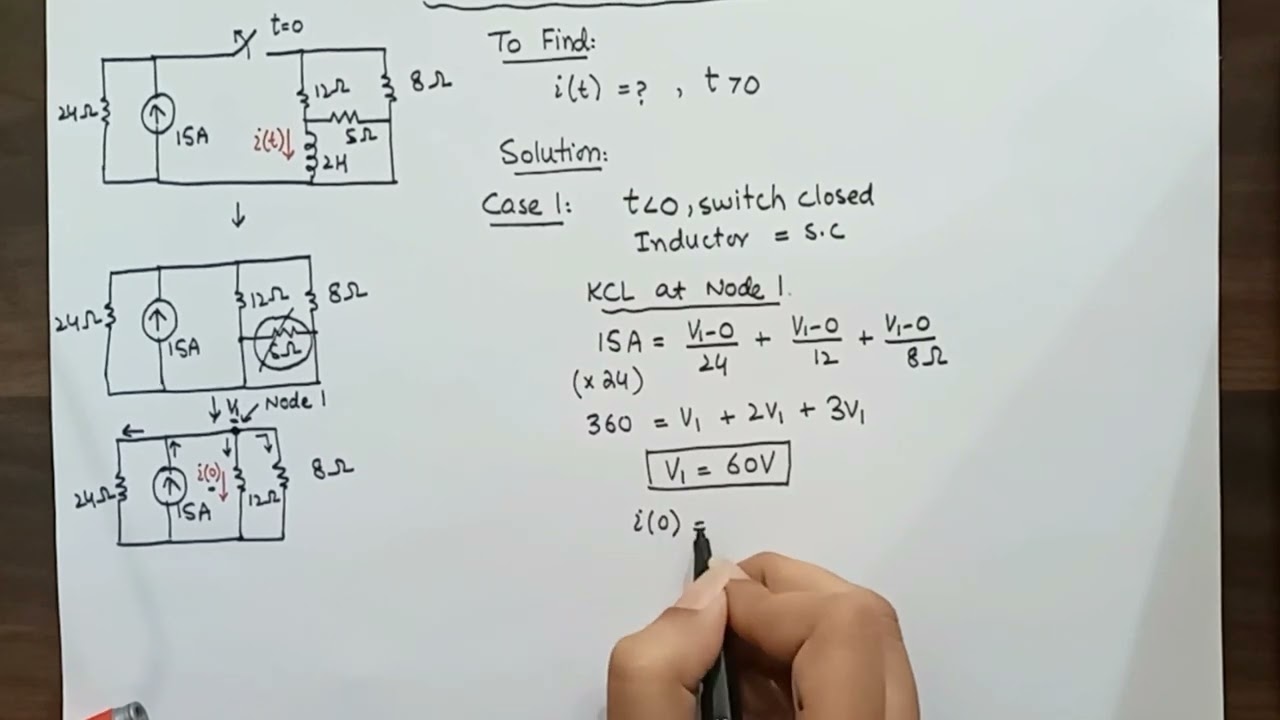 t=0
24Ω
15A
12Ω
8Ω
5Ω
i(t)
2H
24Ω
15A
12Ω
8Ω
5Ω
V₁
Node 1
24Ω
15A
i(0)
12Ω
8Ω
To Find:
i(t) = ? , t >0
Solution:
Case 1: t<0, switch closed
Inductor = S.C
KCL at Node 1.
15A = V₁-0/24 + V₁-0/12 + V₁-0/8Ω
(x 24)
360 = V₁ + 2V₁ + 3V₁
V₁ = 60V
i(0) =